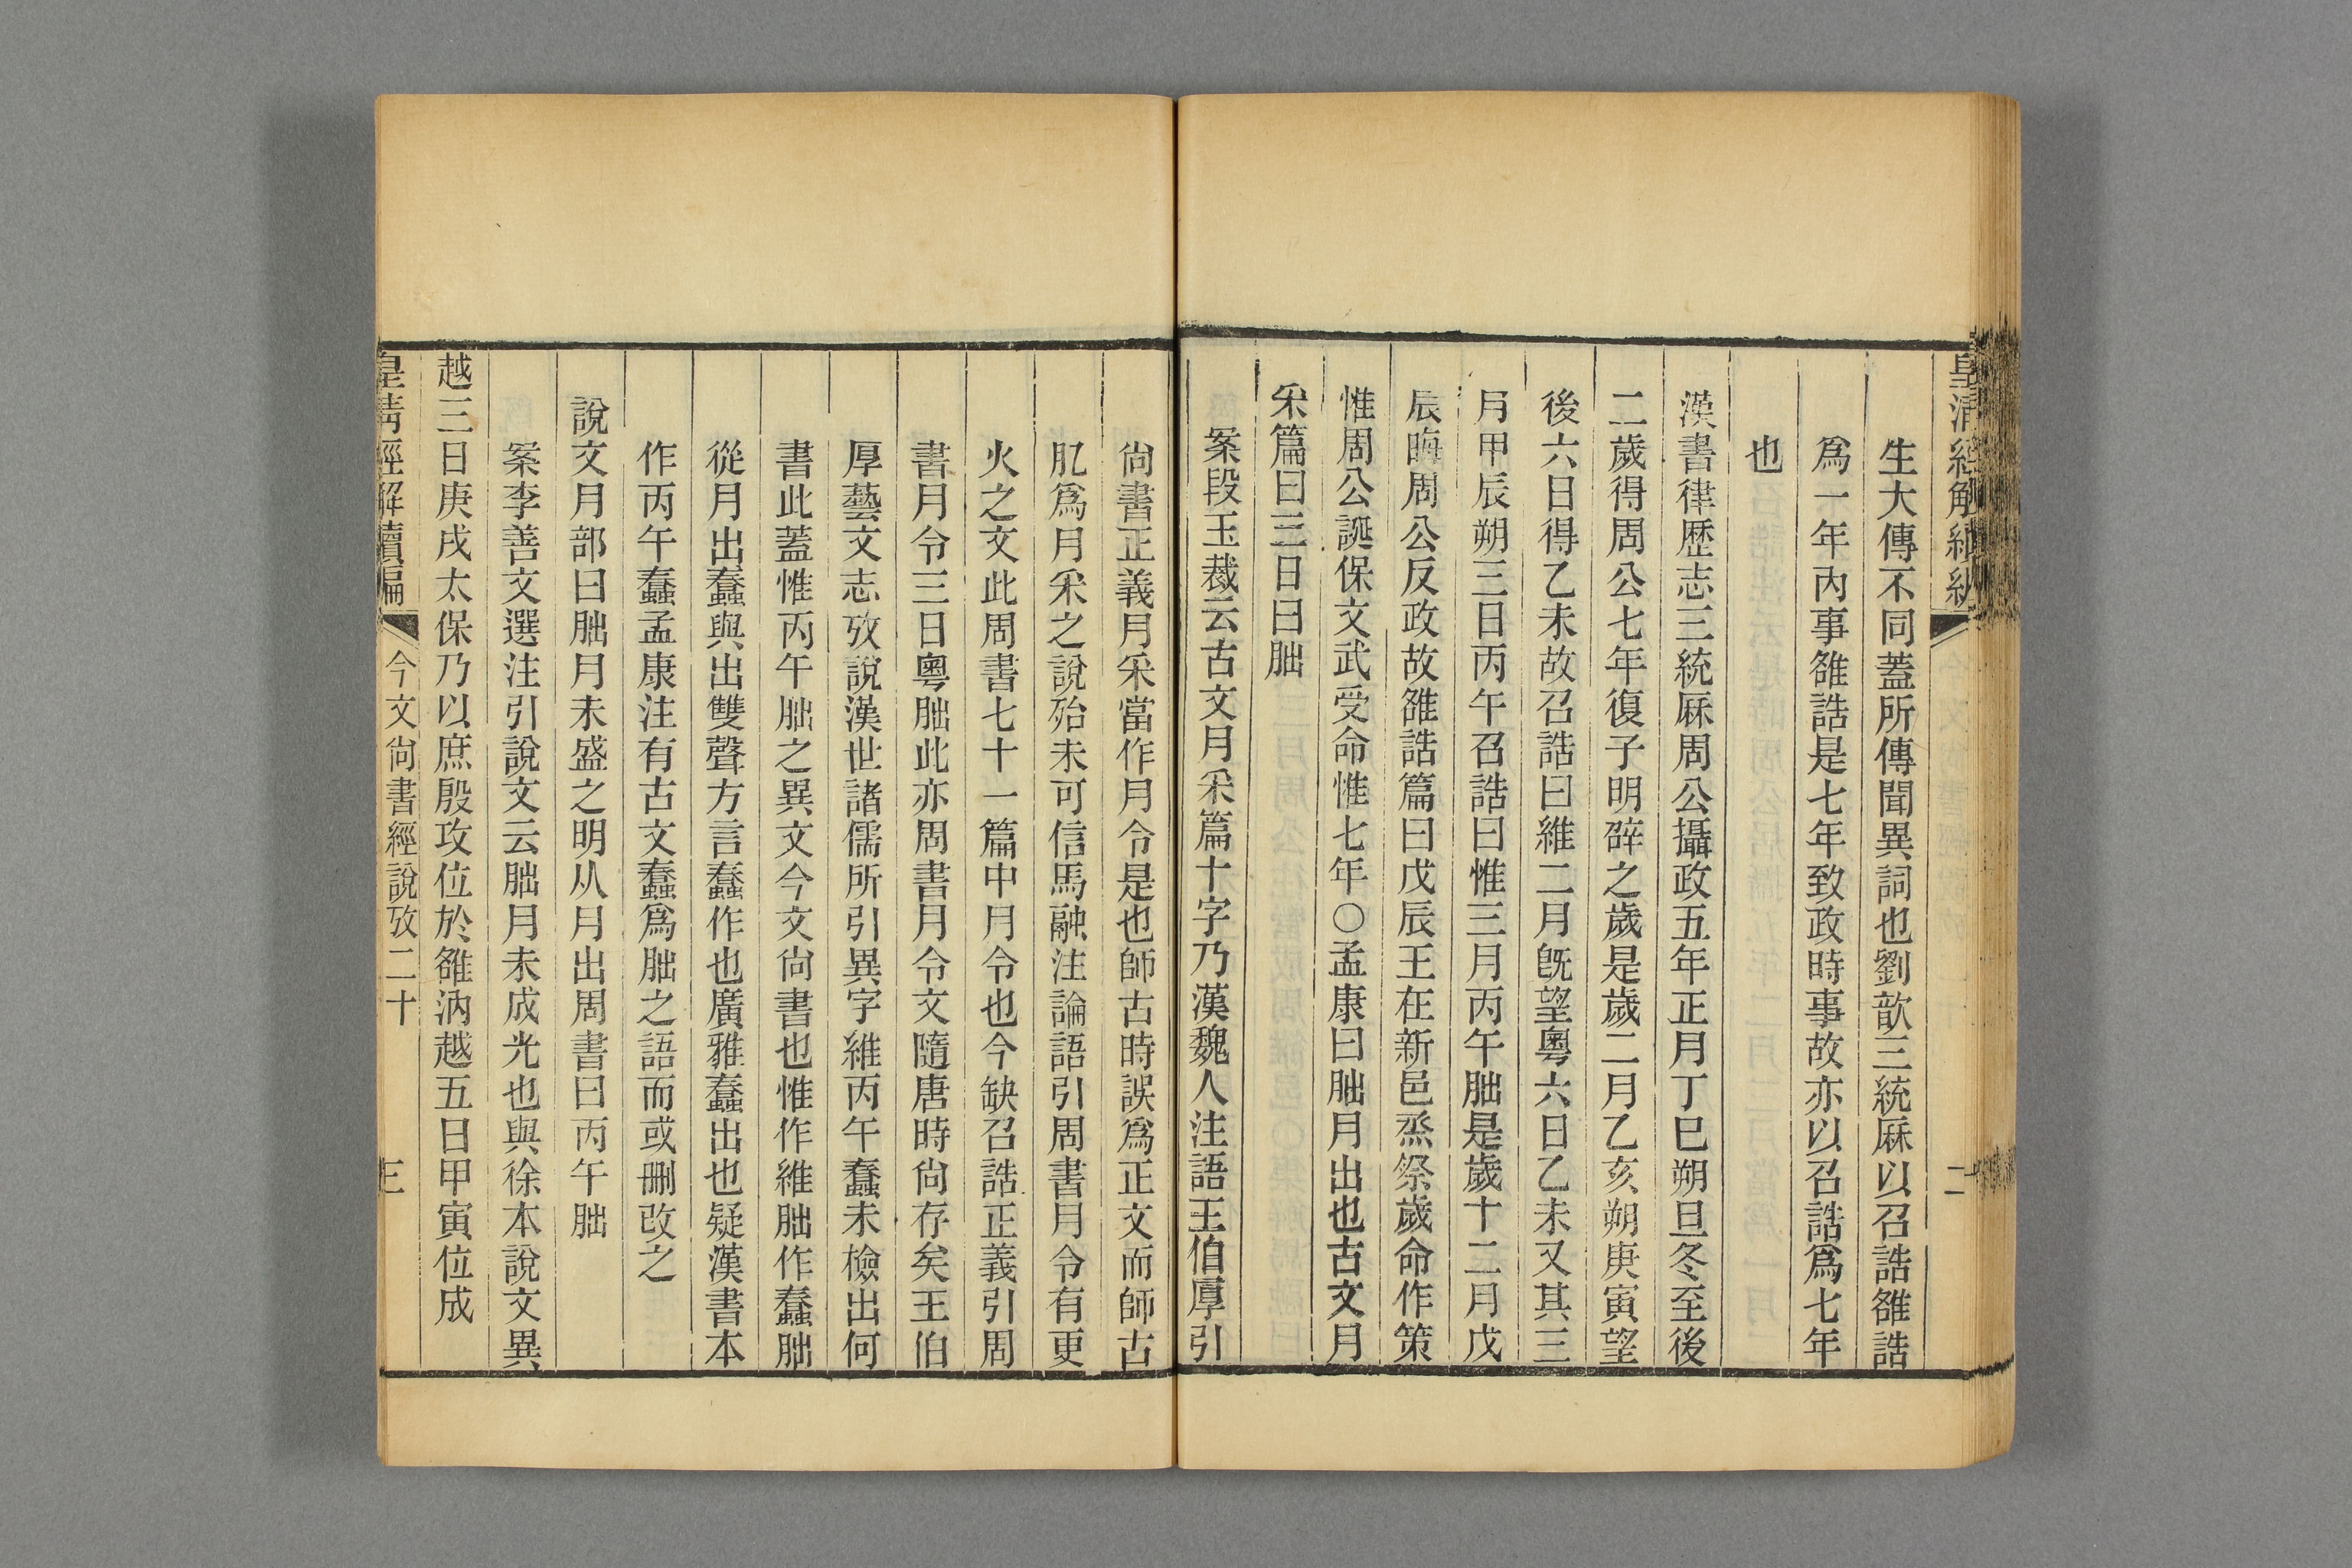 皇清經解續編
二
生大傳不同蓋所傳聞異詞也劉歆三統厤以召誥雒誥
爲一年內事雒誥是七年致政時事故亦以召誥爲七年
也
漢書律歷志三統厤周公攝政五年正月丁巳朔旦冬至後
二歲得周公七年復子明辟之歲是歲二月乙亥朔庚寅望
後六日得乙未故召誥曰維二月旣望粵六日乙未又其三
月甲辰朔三日丙午召誥曰惟三月丙午朏是歲十二月戊
辰晦周公反政故雒誥篇曰戊辰王在新邑烝祭歲命作策
惟周公誕保文武受命惟七年○孟康曰朏月出也古文月
采篇曰三日曰朏
案段玉裁云古文月采篇十字乃漢魏人注語王伯厚引
尙書正義月采當作月令是也師古時誤爲正文而師古
肊爲月采之說殆未可信馬融注論語引周書月令有更
火之文此周書七十一篇中月令也今缺召誥正義引周
書月令三日粵朏此亦周書月令文隨唐時尙存矣王伯
厚藝文志攷說漢世諸儒所引異字維丙午蠢未檢出何
書此蓋惟丙午朏之異文今文尙書也惟作維朏作蠢朏
從月出蠢與出雙聲方言蠢作也廣雅蠢出也疑漢書本
作丙午蠢孟康注有古文蠢爲朏之語而或刪改之
說文月部曰朏月未盛之明从月出周書曰丙午朏
案李善文選注引說文云朏月未成光也與徐本說文異
越三日庚戌太保乃以庶殷攻位於雒汭越五日甲寅位成
皇淸經解續編
今文尙書經說攷二十
三